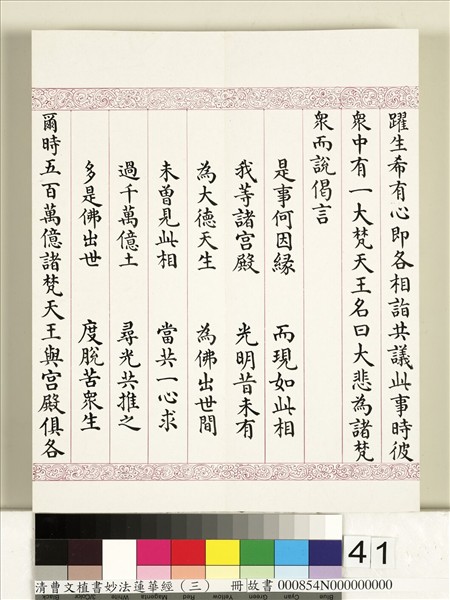 躍生希有心即各相詣共議此事時彼
衆中有一大梵天王名曰大悲為諸梵
衆而說偈言
是事何因緣　而現如此相
我等諸宮殿　光明昔未有
為大德天生　為佛出世間
未曾見此相　當共一心求
過千萬億土　尋光共推之
多是佛出世　度脫苦衆生
爾時五百萬億諸梵天王與宮殿俱各
41
清曹文植書妙法蓮華經（三）　冊 故書 000854N000000000
Black 3/Color White Magenta Red Yellow Green Cyan Blue